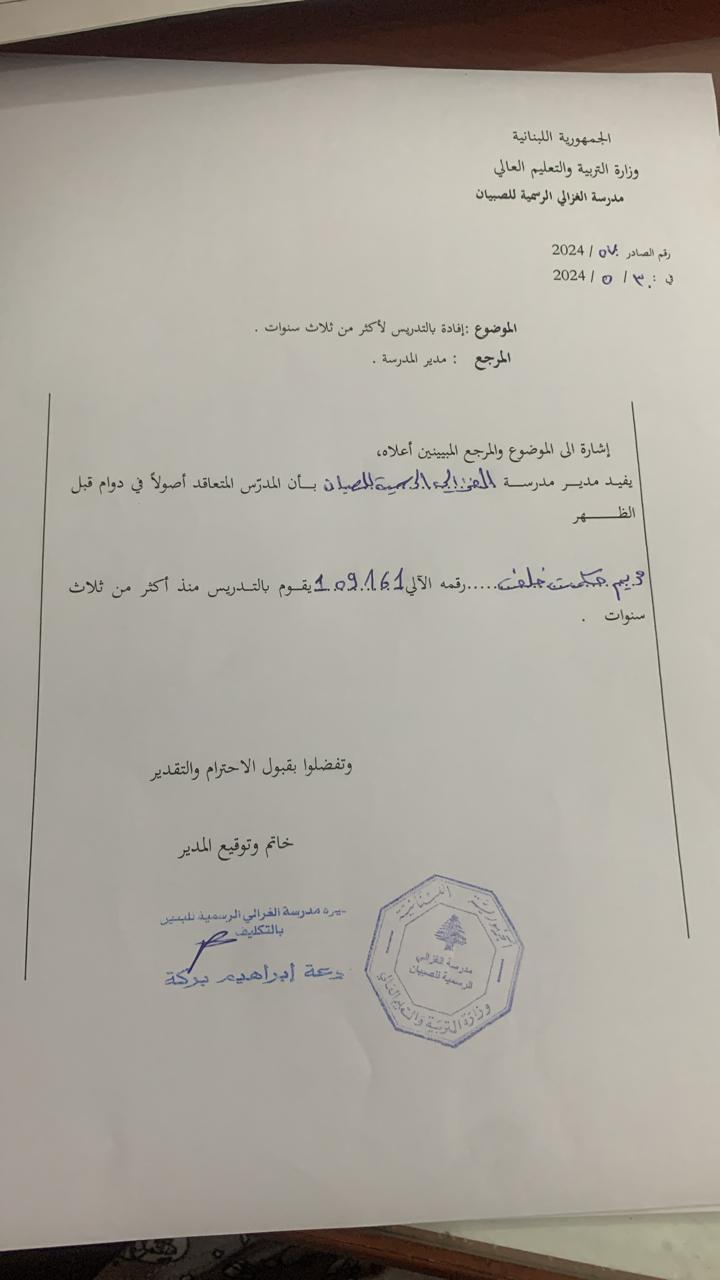 الجمهورية اللبنانية
وزارة التربية والتعليم العالي
مدرسة الغزالي الرسمية للصبيان
رقم الصادر ٥٧ / 2024
في : ٣٠ / ٥ / 2024
الموضوع :إفادة بالتدريس لأكثر من ثلاث سنوات .
المرجع : مدير المدرسة .
إشارة الى الموضوع والمرجع المبينين أعلاه،
يفيد مدير مدرسة الغزالي الرسمية للصبيان بأن المدرّس المتعاقد أصولاً في دوام قبل
الظهر
مريم حكمت خلف.....رقمه الآلي 109161 يقوم بالتدريس منذ أكثر من ثلاث
سنوات .
وتفضلوا بقبول الاحترام والتقدير
خاتم وتوقيع المدير
مدرسة الغزالي الرسمية
بالتكليف
دعة إبراهيم بركة
الجمهورية اللبنانية
مدرسة الغزالي
الرسمية للصبيان
وزارة التربية والتعليم العالي